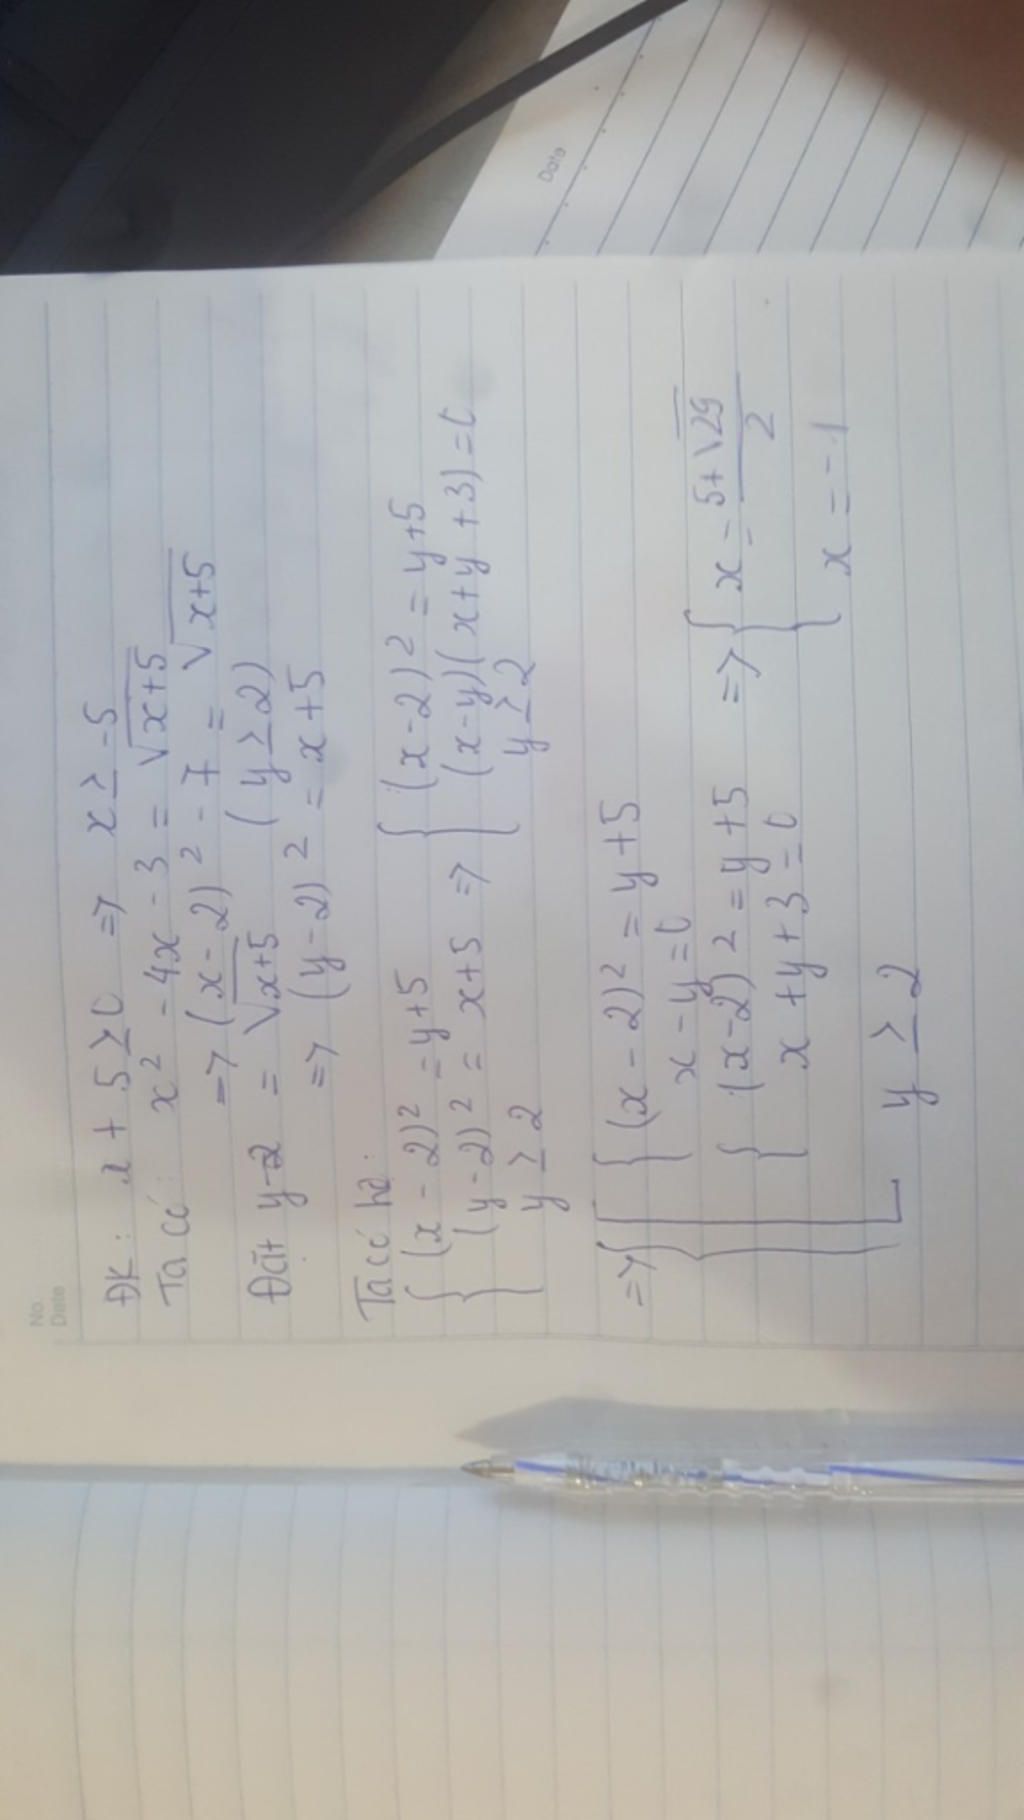 No.
Date
ĐK: x + 5 ≥ 0 => x ≥ -5
Ta có: x² - 4x - 3 = √(x+5)
=> (x - 2)² - 7 = √(x+5)
Đặt y-2 = √(x+5) (y ≥ 2)
=> (y - 2)² = x + 5
Ta có hệ:
{ (x - 2)² = y + 5 { (x - 2)² = y + 5
{ (y - 2)² = x + 5 => { (x - y)(x + y + 3) = 0
{ y ≥ 2 { y ≥ 2
=> { [ { (x - 2)² = y + 5
{ x - y = 0 { x = (5 + √29)/2
{ (x - 2)² = y + 5 =>
{ x + y + 3 = 0 { x = -1
y ≥ 2
Date